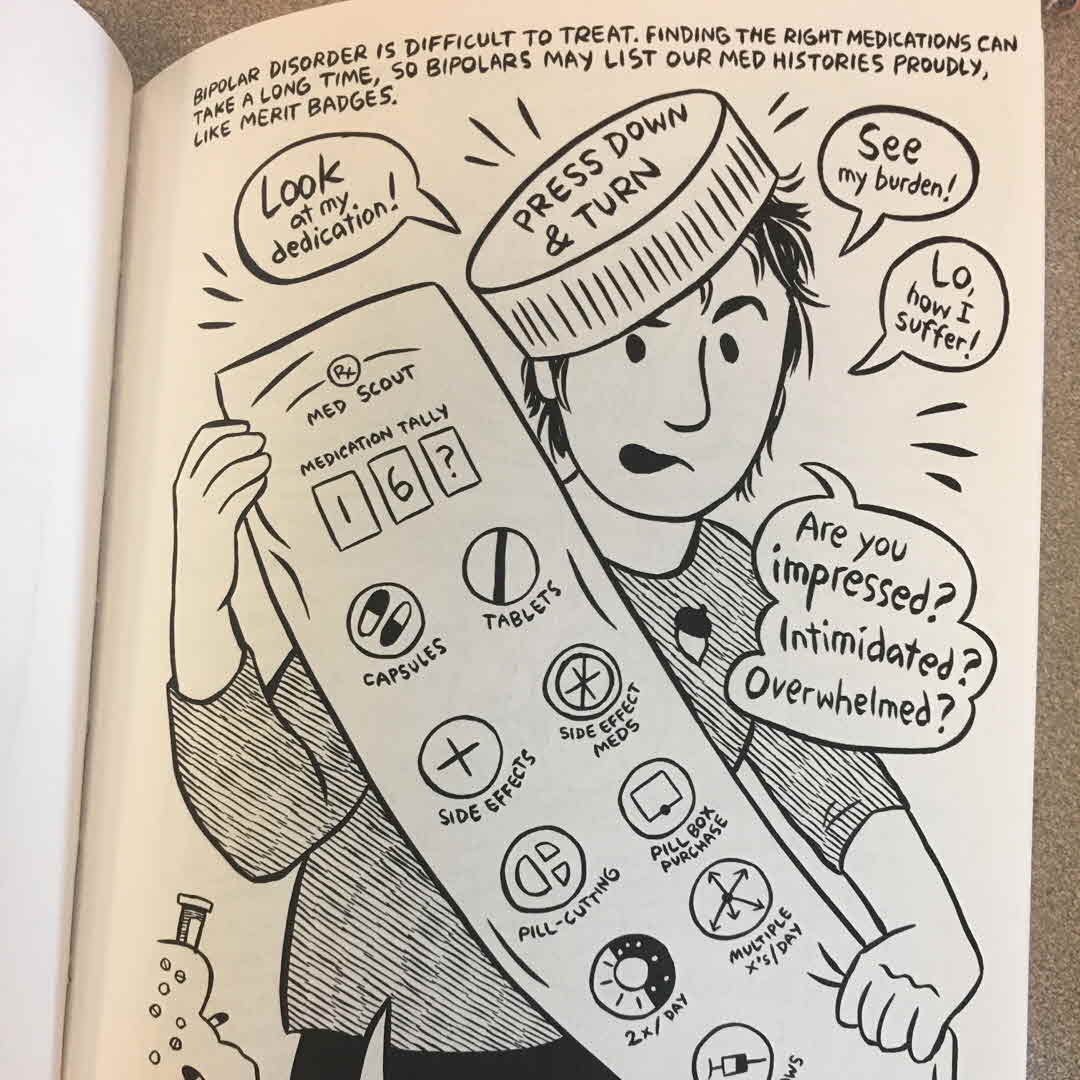 BIPOLAR DISORDER IS DIFFICULT TO TREAT. FINDING THE RIGHT MEDICATIONS CAN
TAKE A LONG TIME, SO BIPOLARS MAY LIST OUR MED HISTORIES PROUDLY,
LIKE MERIT BADGES.
Look
at my
dedication!
PRESS DOWN
& TURN
See
my burden!
Lo,
how I
suffer!
Rx
MED SCOUT
MEDICATION TALLY
1 6 ?
Are you
impressed?
Intimidated?
Overwhelmed?
TABLETS
CAPSULES
SIDE EFFECT
MEDS
SIDE EFFECTS
PILL BOX
PURCHASE
PILL-CUTTING
MULTIPLE
X'S/DAY
2X/DAY